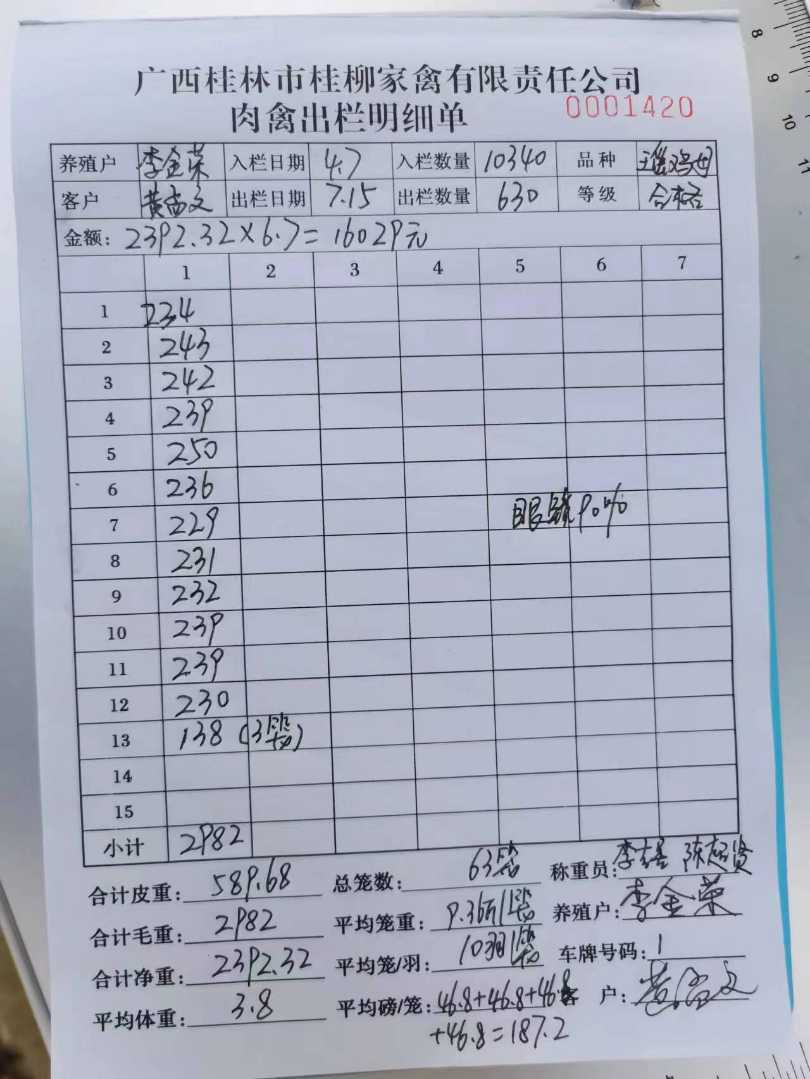 广西桂林市桂柳家禽有限责任公司
肉禽出栏明细单 0001420
养殖户 李金荣 入栏日期 4.7 入栏数量 10340 品种 瑶鸡母
客户 黄富文 出栏日期 7.15 出栏数量 630 等级 合格
金额: 2392.32×6.7=16029元
1 2 3 4 5 6 7
1 234
2 243
3 242
4 239
5 250
6 236
7 229 眼镜90%
8 231
9 232
10 239
11 239
12 230
13 138 (3笼)
14
15
小计 2982
合计皮重: 589.68 总笼数: 63笼 称重员:
合计毛重: 2982 平均笼重: 9.36斤/笼 养殖户: 李金荣
合计净重: 2392.32 平均笼/羽: 10羽/笼 车牌号码: 1
平均体重: 3.8 平均磅/笼: 46.8+46.8+46.8 客户: 黄富文
+46.8=187.2
8
9
10
11